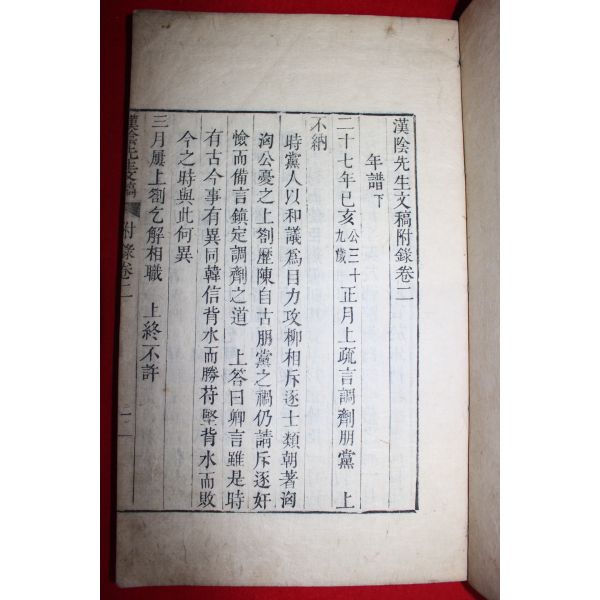 漢陰先生文稿附錄卷二
年譜下
二十七年己亥公三十九歲正月上疏言調劑朋黨 上
不納
時黨人以和議爲目力攻柳相斥逐士類朝著洶
洶公憂之上劄歷陳自古朋黨之禍仍請斥逐奸
憸而備言鎭定調劑之道 上答曰卿言雖是時
有古今事有異同韓信背水而勝苻堅背水而敗
今之時與此何異
三月屢上劄乞解相職 上終不許
漢陰先生文稿 附錄卷二